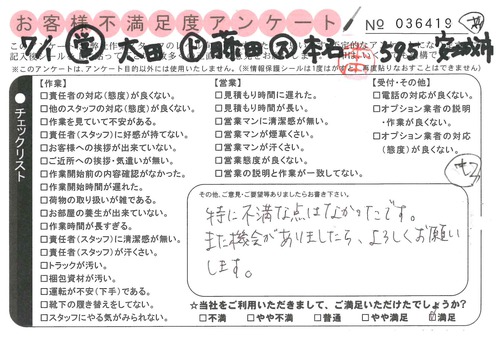 お客様不満足度アンケート
No 036419
7/1 太田 藤田 本名 595
※このアンケートは、アンケート目的以外には使用いたしません。(※情報保護シールは1度はがすと再度貼りなおすことはできません)
チェックリスト
【作業】
□責任者の対応(態度)が良くない。
□他のスタッフの対応(態度)が良くない。
□作業を見ていて不安がある。
□責任者(スタッフ)に好感が持てない。
□お客様への挨拶が出来ていない。
□ご近所への挨拶・気遣いが無い。
□作業開始前の内容確認がなかった。
□作業開始時間が遅れた。
□荷物の取り扱いが雑である。
□お部屋の養生が出来ていない。
□作業時間が長すぎる。
□責任者(スタッフ)に清潔感が無い。
□責任者(スタッフ)が汗くさい。
□トラックが汚い。
□梱包資材が汚い。
□運転が不安(下手)である。
□靴下の履き替えをしてない。
□スタッフにやる気がみられない。
【営業】
□見積もり時間に遅れた。
□見積もり時間が長い。
□営業マンに清潔感が無い。
□営業マンが煙草くさい。
□営業マンが汗くさい。
□営業態度が良くない。
□営業の説明と作業が一致してない。
【受付・その他】
□電話の対応が良くない。
□オプション業者の説明
・作業が良くない。
□オプション業者の対応
(態度)が良くない。
その他、ご意見・ご要望等ありましたらお書き下さい。
特に不満な点はなかったです。
また機会がありましたら、よろしくお願い
します。
☆当社をご利用いただきまして、ご満足いただけたでしょうか?
□不満 □やや不満 □普通 □やや満足 ☑満足